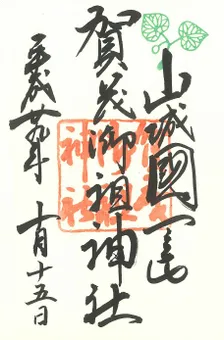 山城國一宮
賀茂御祖神社
平成廿九年 十月十五日